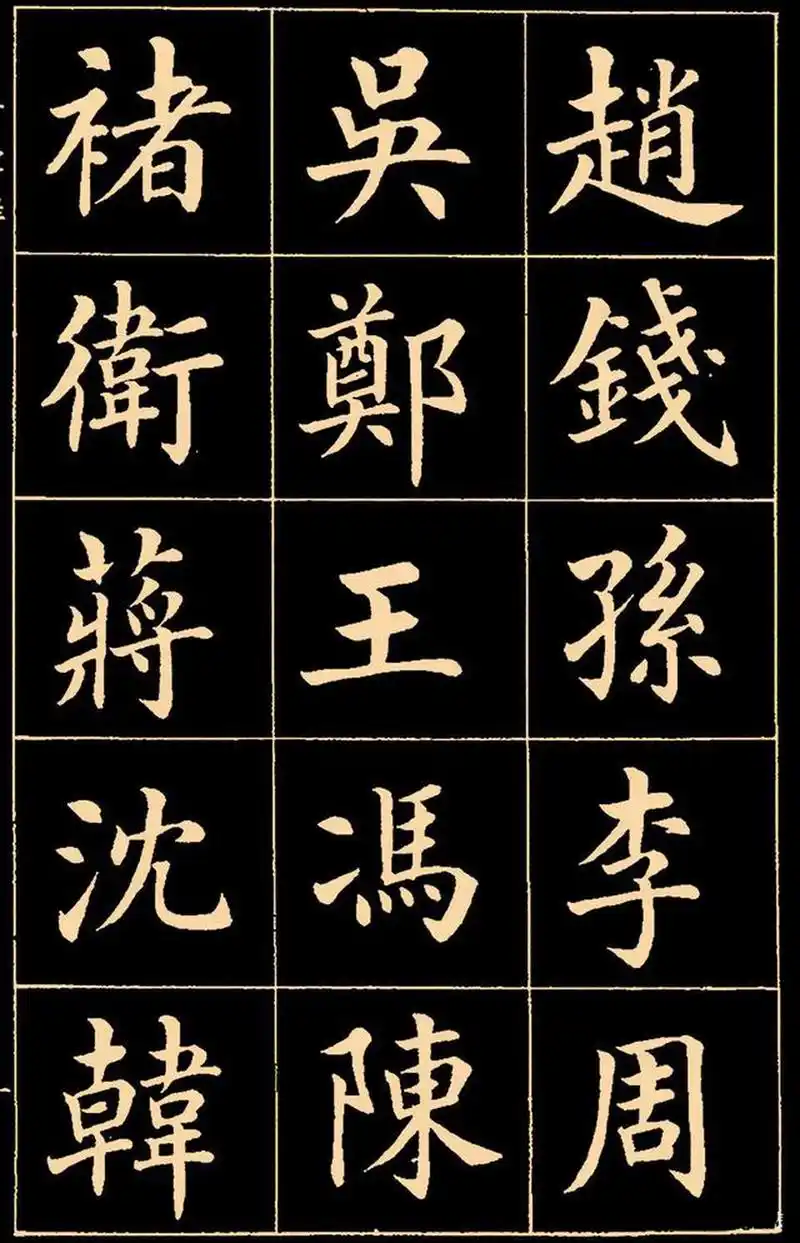 趙錢孫李周
吳鄭王馮陳
褚衛蔣沈韓